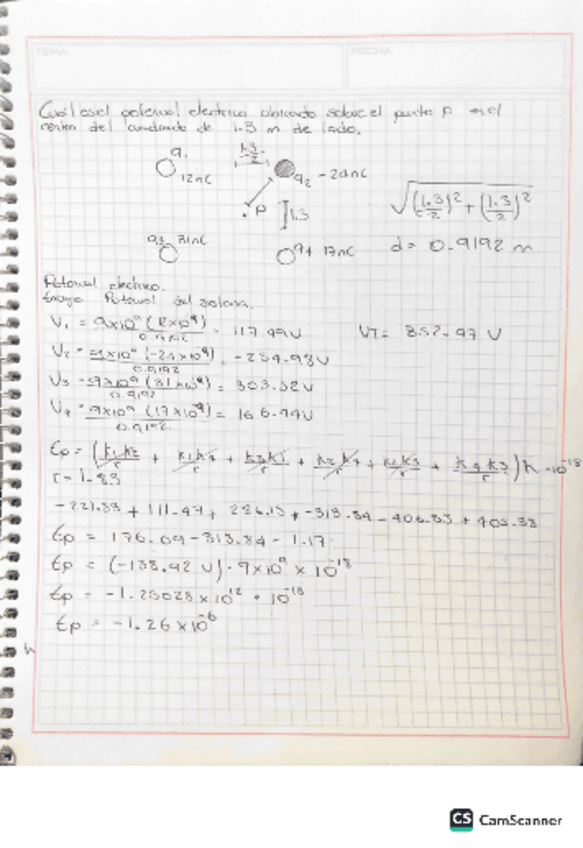 TEMA
FECHA
Cuál es el potencial electrico obtenido sobre el punto P en el
centro del cuadrado de 1.3 m de lado.
q1
12nC
1.3/2
q2 -24nC
P
1.3
q3 31nC
q4 17nC
√((1.3/2)² + (1.3/2)²)
d = 0.9192 m
Potencial electrico.
Energia Potencial del sistema.
V1 = 9x10⁹(12x10⁻⁹)/0.9192 = 117.49V
VT = 352.47 V
V2 = 9x10⁹(-24x10⁻⁹)/0.9192 = -234.98V
V3 = 9x10⁹(31x10⁻⁹)/0.9192 = 303.52V
V4 = 9x10⁹(17x10⁻⁹)/0.9192 = 166.44V
r = 1.83
-221.53 + 111.47 + 286.15 + -313.84 - 406.33 + 405.38
Ep = 176.09 - 313.84 - 1.17
Ep = (-138.92 V) · 9x10⁹ x 10⁻¹⁸
Ep = -1.25028x10¹² · 10⁻¹⁸
Ep = -1.26 x10⁻⁶
CS CamScanner